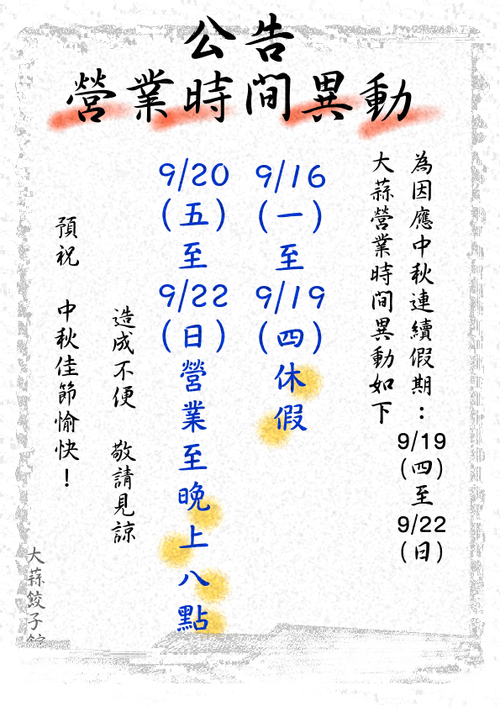 公告
營業時間異動
為因應中秋連續假期：9/19（四）至9/22（日）
大蒜營業時間異動如下
9/16（一）至9/19（四）休假
9/20（五）至9/22（日）營業至晚上八點
造成不便 敬請見諒
預祝 中秋佳節愉快！
大蒜餃子館